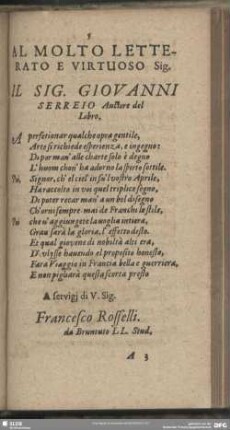 5
AL MOLTO LETTE-
RATO E VIRTUOSO Sig.
IL SIG. GIOVANNI
SERREIO Auctore del
Libro.
A perfetionar qualche opra gentile,
Arte si richiede esperienza, e ingegno:
Di por man' alle charte solo è degno
L'huom chou' ha adorno la sporto sottile.
Signor, ch' el ciel' in su'l vostro Aprile,
Ha raccolto in voi quel triplice segno,
Di poter recar man' a un bel disegno
Ch'orni sempre mai de Franchi lo stile,
che n'aggiungete la uoglia intiera,
Grau sarà la gloria, l'effetto desto.
Et qual giouene di nobiltà altiera,
D'vlysse hauendo el proposito honesto,
Fara Viaggio in Francia bella e guerriera,
E non pigliarà questa scorta presto
A servigj di V. Sig.
Francesco Rosselli.
da Bruntuto LL. Stud.
A 3
SLUB
DFG